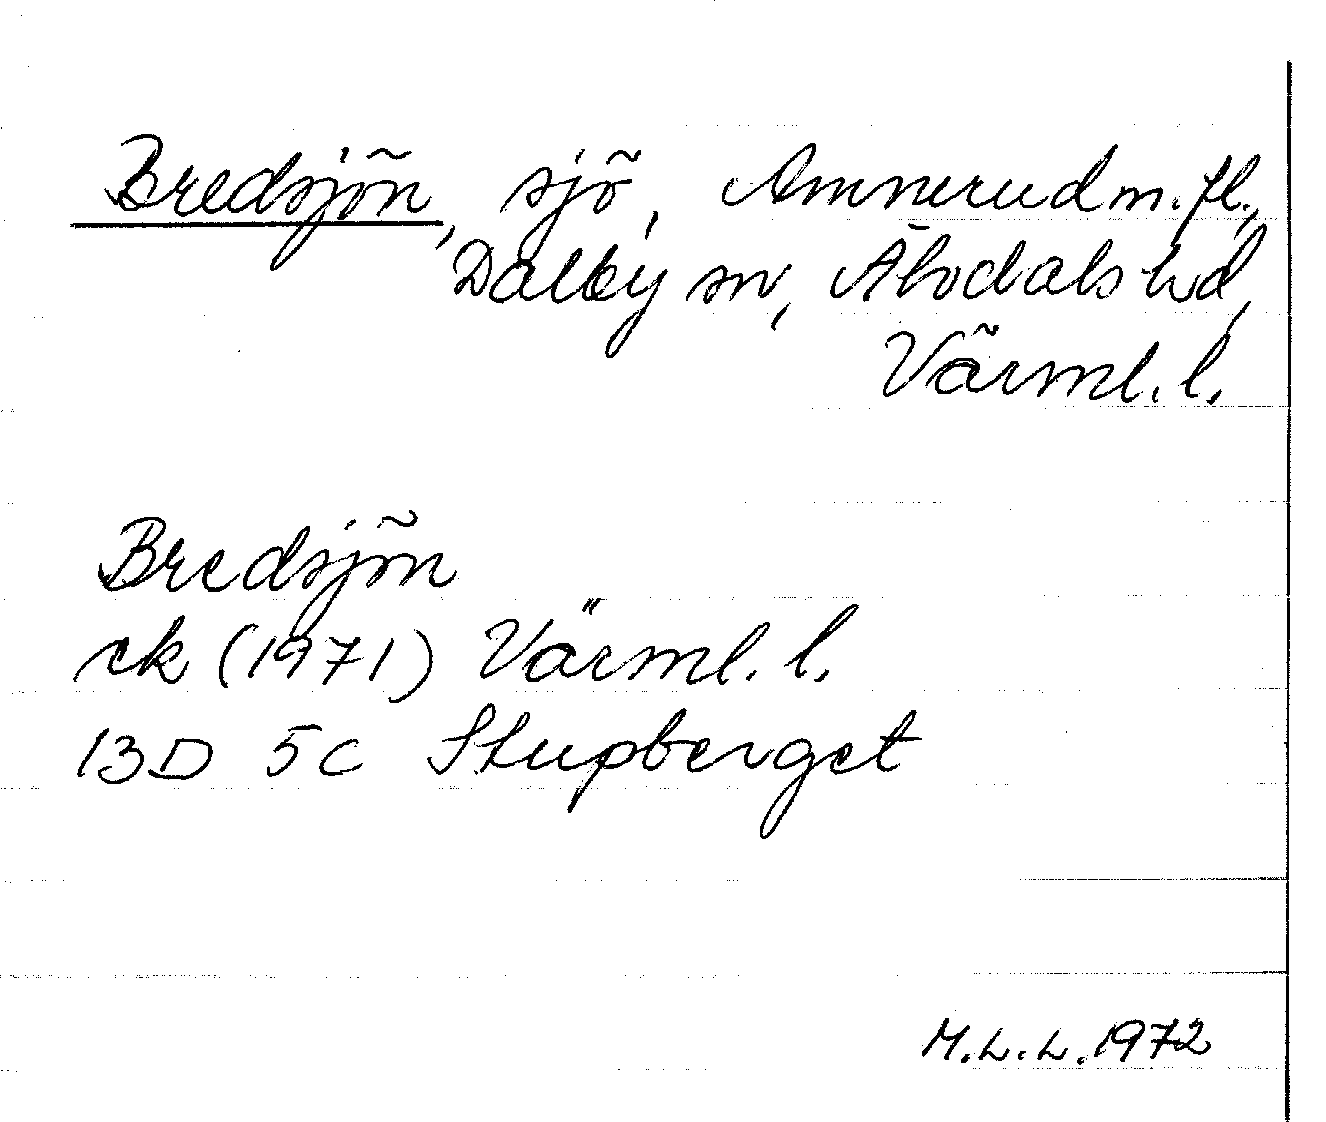 Bredsjön, sjö, Amnerud m.fl.,
Dalby sn, Älvdals hd,
Värml. l.
Bredsjön
ek (1971) Värml. l.
13D 5c Stupberget
M.L.L. 1972